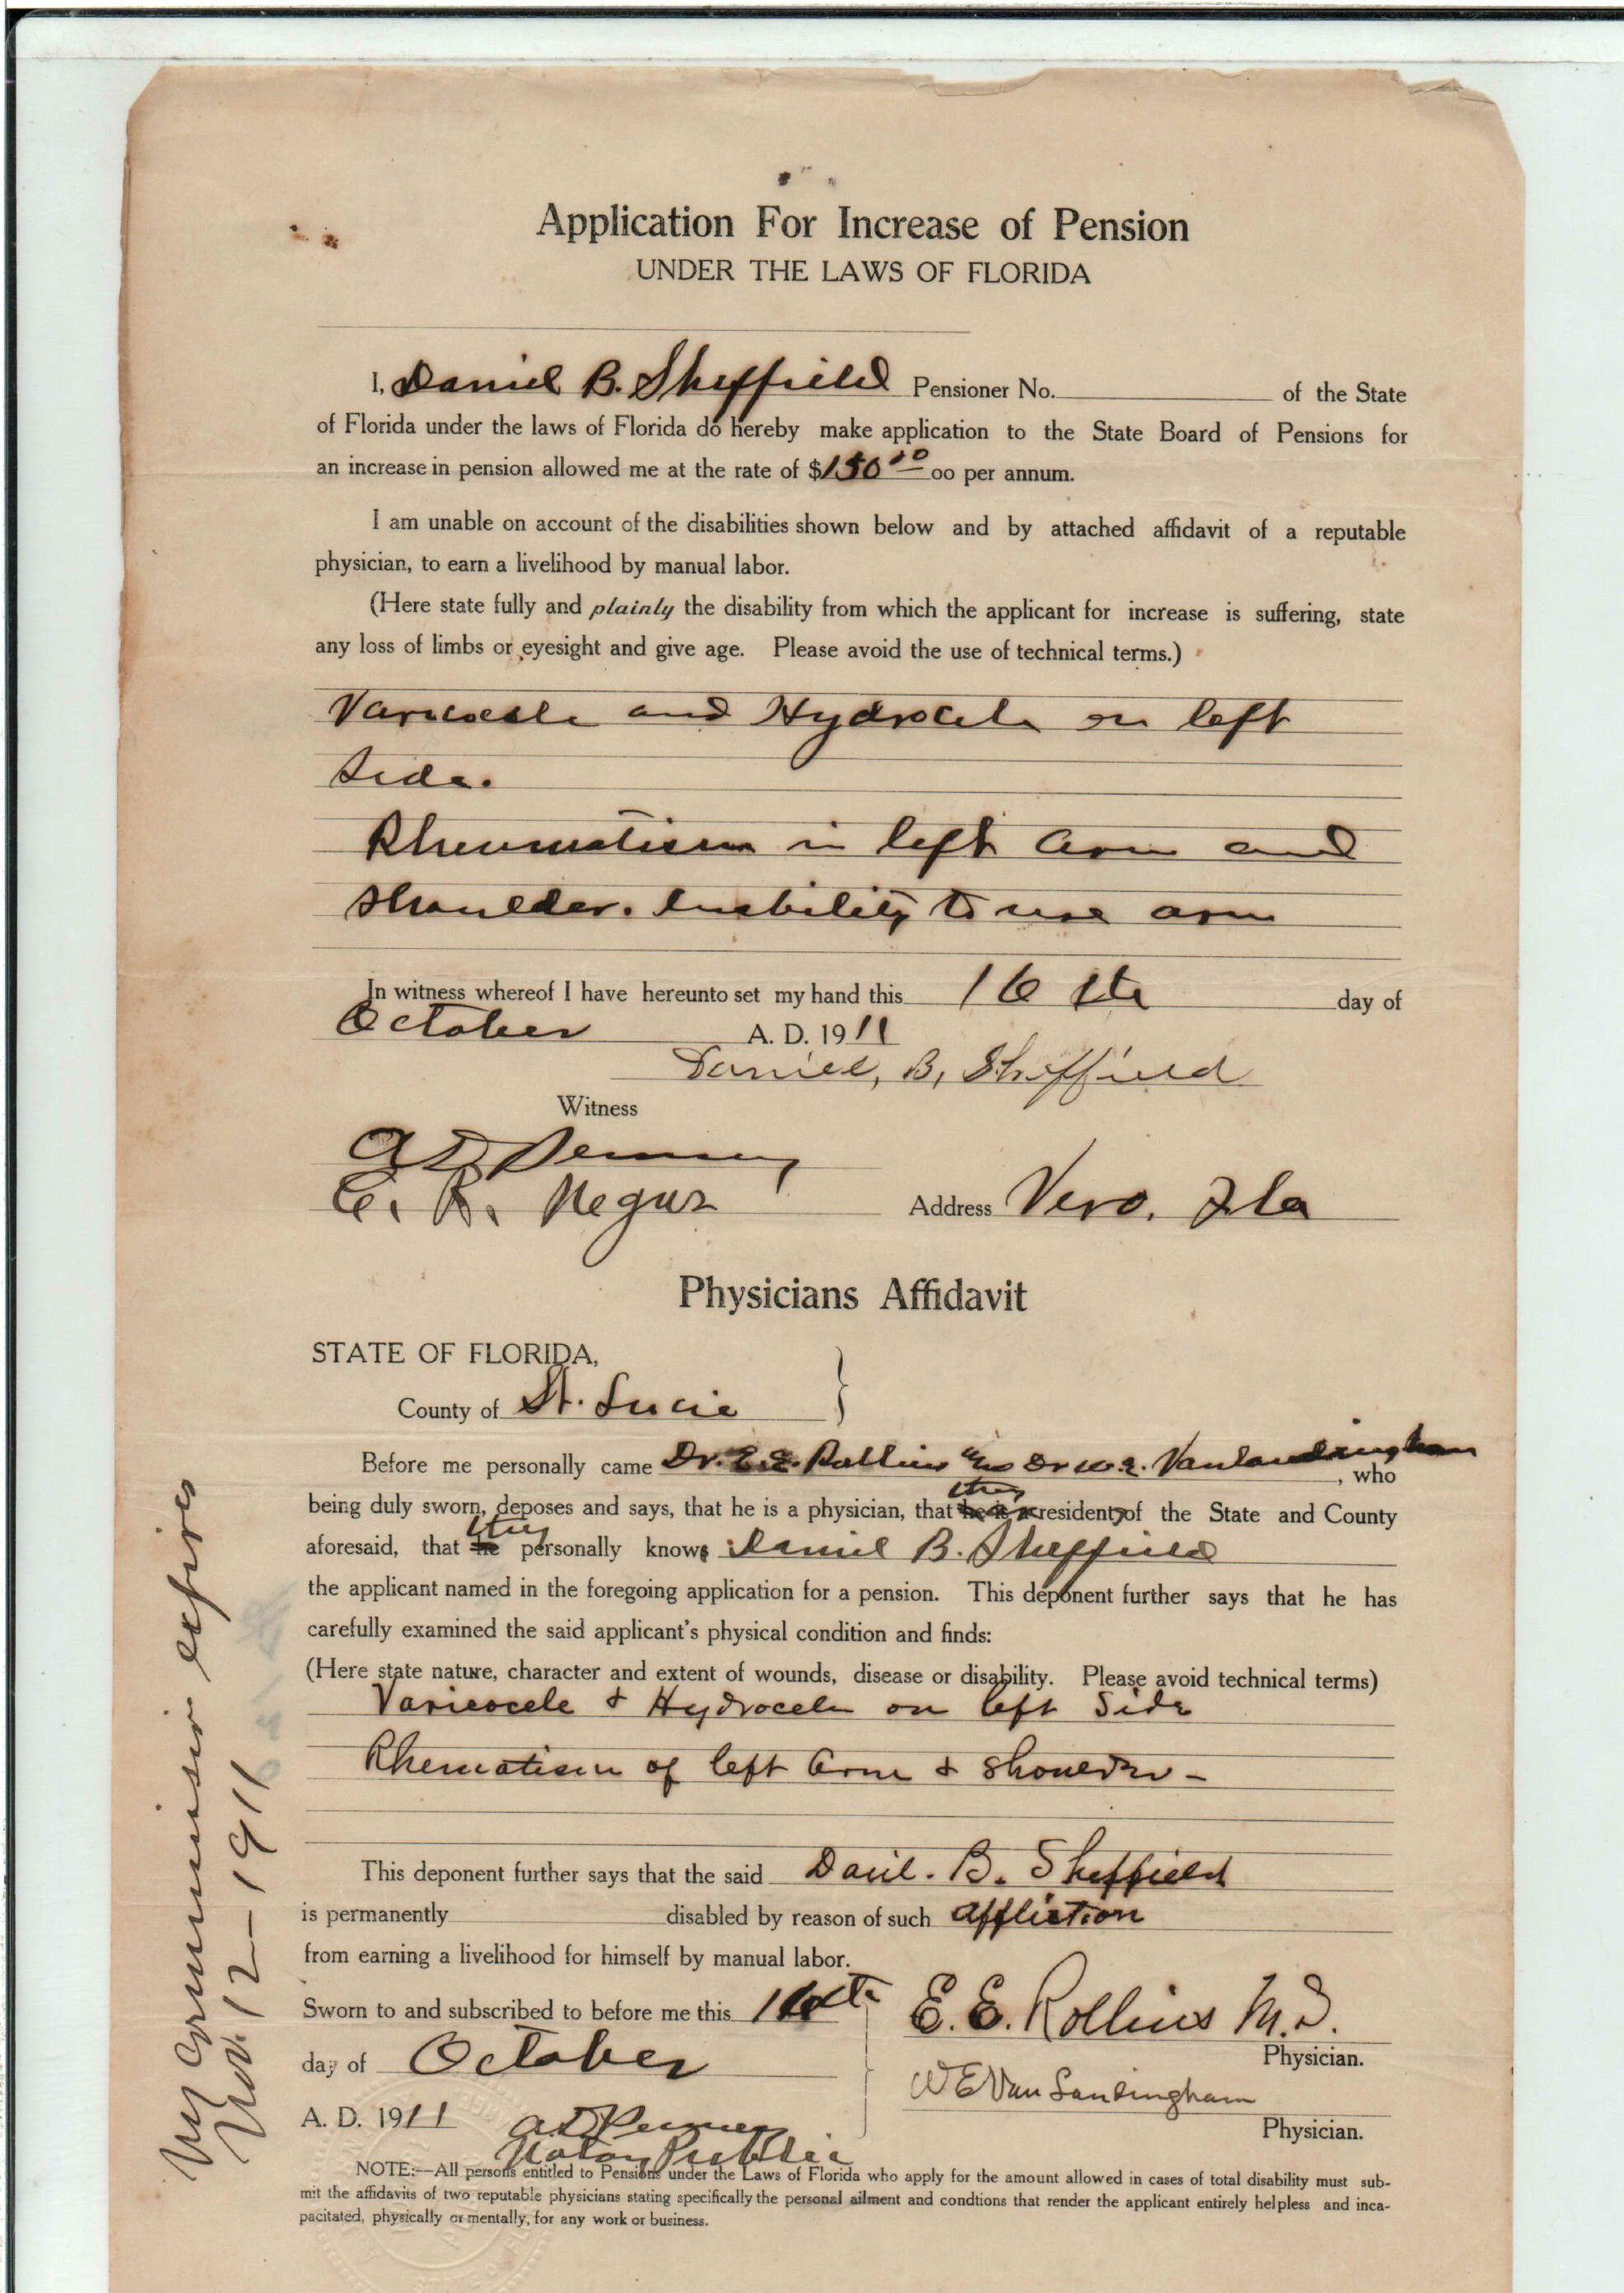 Application For Increase of Pension
UNDER THE LAWS OF FLORIDA
I, Daniel B. Sheffield Pensioner No. of the State
of Florida under the laws of Florida do hereby make application to the State Board of Pensions for
an increase in pension allowed me at the rate of $150 00 per annum.
I am unable on account of the disabilities shown below and by attached affidavit of a reputable
physician, to earn a livelihood by manual labor.
(Here state fully and plainly the disability from which the applicant for increase is suffering, state
any loss of limbs or eyesight and give age. Please avoid the use of technical terms.)
Varicocele and Hydrocele on left
side.
Rheumatism in left arm and
shoulder. Inability to use arm
In witness whereof I have hereunto set my hand this 16th day of
October A. D. 1911
Daniel, B, Sheffield
Witness
A D Penney
E. R. Negus
Address Vero. Fla
Physicians Affidavit
STATE OF FLORIDA,
County of St. Lucie }
Before me personally came Dr. E. E. Rollins and Dr W. E. Vanlandingham, who
they
being duly sworn, deposes and says, that he is a physician, that he is a resident of the State and County
they
aforesaid, that he personally knows Daniel B. Sheffield
the applicant named in the foregoing application for a pension. This deponent further says that he has
carefully examined the said applicant's physical condition and finds:
(Here state nature, character and extent of wounds, disease or disability. Please avoid technical terms)
Varicocele & Hydrocele on left Side
Rhematism of left arm & shoulder -
This deponent further says that the said Danil. B. Sheffield
is permanently disabled by reason of such affliction
from earning a livelihood for himself by manual labor.
Sworn to and subscribed to before me this 16th
day of October
A. D. 1911
A D Penney
Notary Public
E. E. Rollins M.D.
Physician.
W E Van Landingham
Physician.
NOTE:—All persons entitled to Pensions under the Laws of Florida who apply for the amount allowed in cases of total disability must sub-
mit the affidavits of two reputable physicians stating specifically the personal ailment and condtions that render the applicant entirely helpless and inca-
pacitated, physically or mentally, for any work or business.
My Commission expires
Nov. 12 - 1911